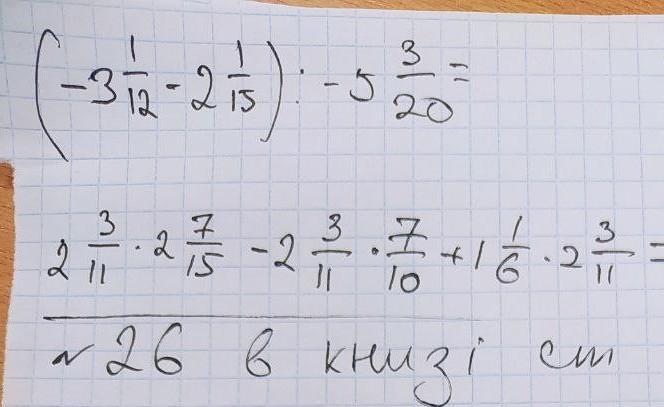 (-3 1/12 - 2 1/15) : -5 3/20 =
2 3/11 · 2 7/15 - 2 3/11 · 7/10 + 1 1/6 · 2 3/11 =
~ 26 в книзі ст